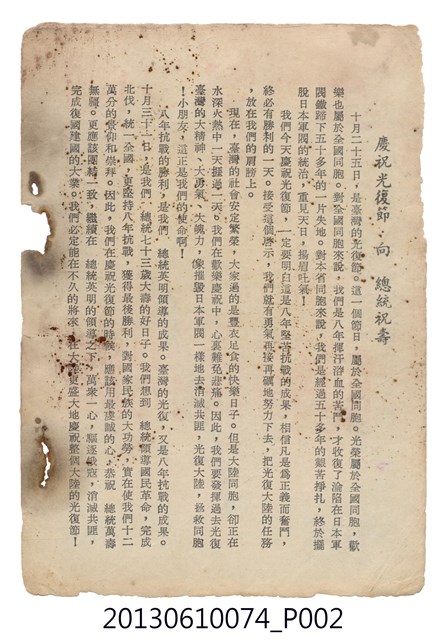 慶祝光復節 向 總統祝壽
十月二十五日，是臺灣的光復節。這一個節日，屬於全國同胞。光榮屬於全國同胞，歡
樂也屬於全國同胞。對全國同胞來說，我們是八年揮汗洒血的苦鬥，才收復了淪陷在日本軍
閥鐵蹄下五十多年的一片失地。對本省同胞來說，我們是經過五十多年的艱苦掙扎，終於擺
脫日本軍閥的統治，重見天日，揚眉吐氣！
我們今天慶祝光復節，一定要明白這是八年堅苦抗戰的成果，相信凡是為正義而奮鬥，
終必有勝利的一天。接受這個啓示，我們就有勇氣再接再礪地努力下去，把光復大陸的任務
，放在我們的肩膀上。
現在，臺灣的社會安定繁榮，大家過的是豐衣足食的快樂日子。但是大陸同胞，卻正在
水深火熱中一天捱過一天。我們在歡樂慶祝中，心裏難免悲痛。因此，我們要發揮過去光復
臺灣的大精神、大勇氣、大魄力，像摧毀日本軍閥一樣地去消滅共匪，光復大陸，拯救同胞
！小朋友，這正是我們的使命啊！
八年抗戰的勝利，是我們 總統英明領導的成果。臺灣的光復，又是八年抗戰的成果。
十月三十一日，是我們 總統七十三歲大壽的好日子。我們想到 總統領導國民革命，完成
北伐，統一全國，更堅持八年抗戰，獲得最後勝利，對國家民族的大功勞，實在使我們十二
萬分的景仰和崇拜。因此，我們在慶祝光復節的時候，應該用最虔誠的心，恭祝 總統萬壽
無疆。更應該團結一致，繼續在 總統英明的領導之下，萬眾一心，驅逐俄寇，消滅共匪，
完成復國建國的大業。我們必定能在不久的將來，在大陸更盛大地慶祝整個大陸的光復節！
20130610074_P002